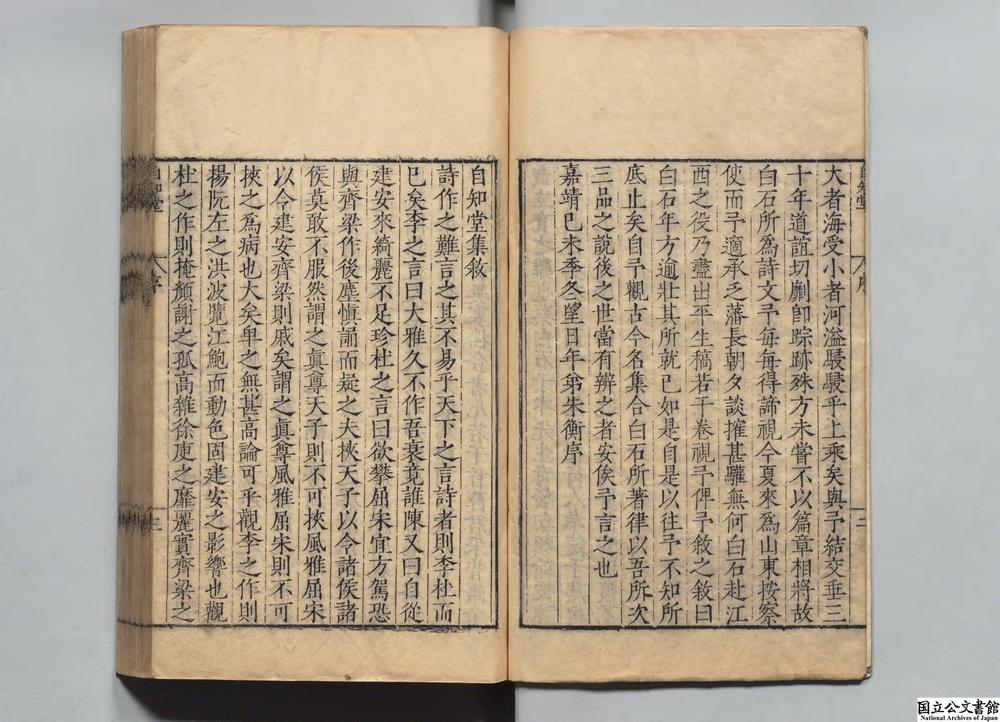 大者海受小者河溢駸駸乎上乘矣與予結交垂三
十年道誼切劘卽踪跡殊方未嘗不以篇章相將故
白石所爲詩文予每每得諦視今夏來爲山東按察
使而予適承乏藩長朝夕談搉甚驩無何白石赴江
西之役乃盡出平生稿若干卷視予俾予敘之敘曰
白石年方逾壯其所就已如是自是以往予不知所
底止矣自予觀古今名集合白石所著律以吾所次
三品之說後之世當有辨之者安俟予言之也
嘉靖己未季冬望日年弟朱衡序
自知堂集敘
詩作之難言之其不易乎天下之言詩者則李杜而
已矣李之言曰大雅久不作吾衰竟誰陳又曰自從
建安來綺麗不足珍杜之言曰欲攀屈宋宜方駕恐
與齊梁作後塵愼誦而疑之夫挾天子以令諸侯諸
侯莫敢不服然謂之眞尊天子則不可挾風雅屈宋
以令建安齊梁則戚矣謂之眞尊風雅屈宋則不可
挾之爲病也大矣卑之無甚高論可乎觀李之作則
揚阮左之洪波覽江鮑而動色固建安之影響也觀
杜之作則掩顏謝之孤高雜徐庾之靡麗實齊梁之
自知堂
序
三
序
二
国立公文書館
National Archives of Japan